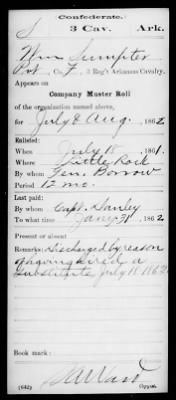 Confederate.
S 3 Cav. Ark.
Wm Sumpter
Pvt, Co. F, 3 Reg't Arkansas Cavalry.
Appears on
Company Muster Roll
of the organization named above,
for July & Aug, 1862
Enlisted:
When July 18, 1861.
Where Little Rock
By whom Gen. Borrow
Period 12 mo.
Last paid:
By whom Capt. Danley
To what time Jany 31, 1862
Present or absent
Remarks: Discharged by reason
of having hired a
Substitute July 18 1862
Book mark:
(642) Copyist.